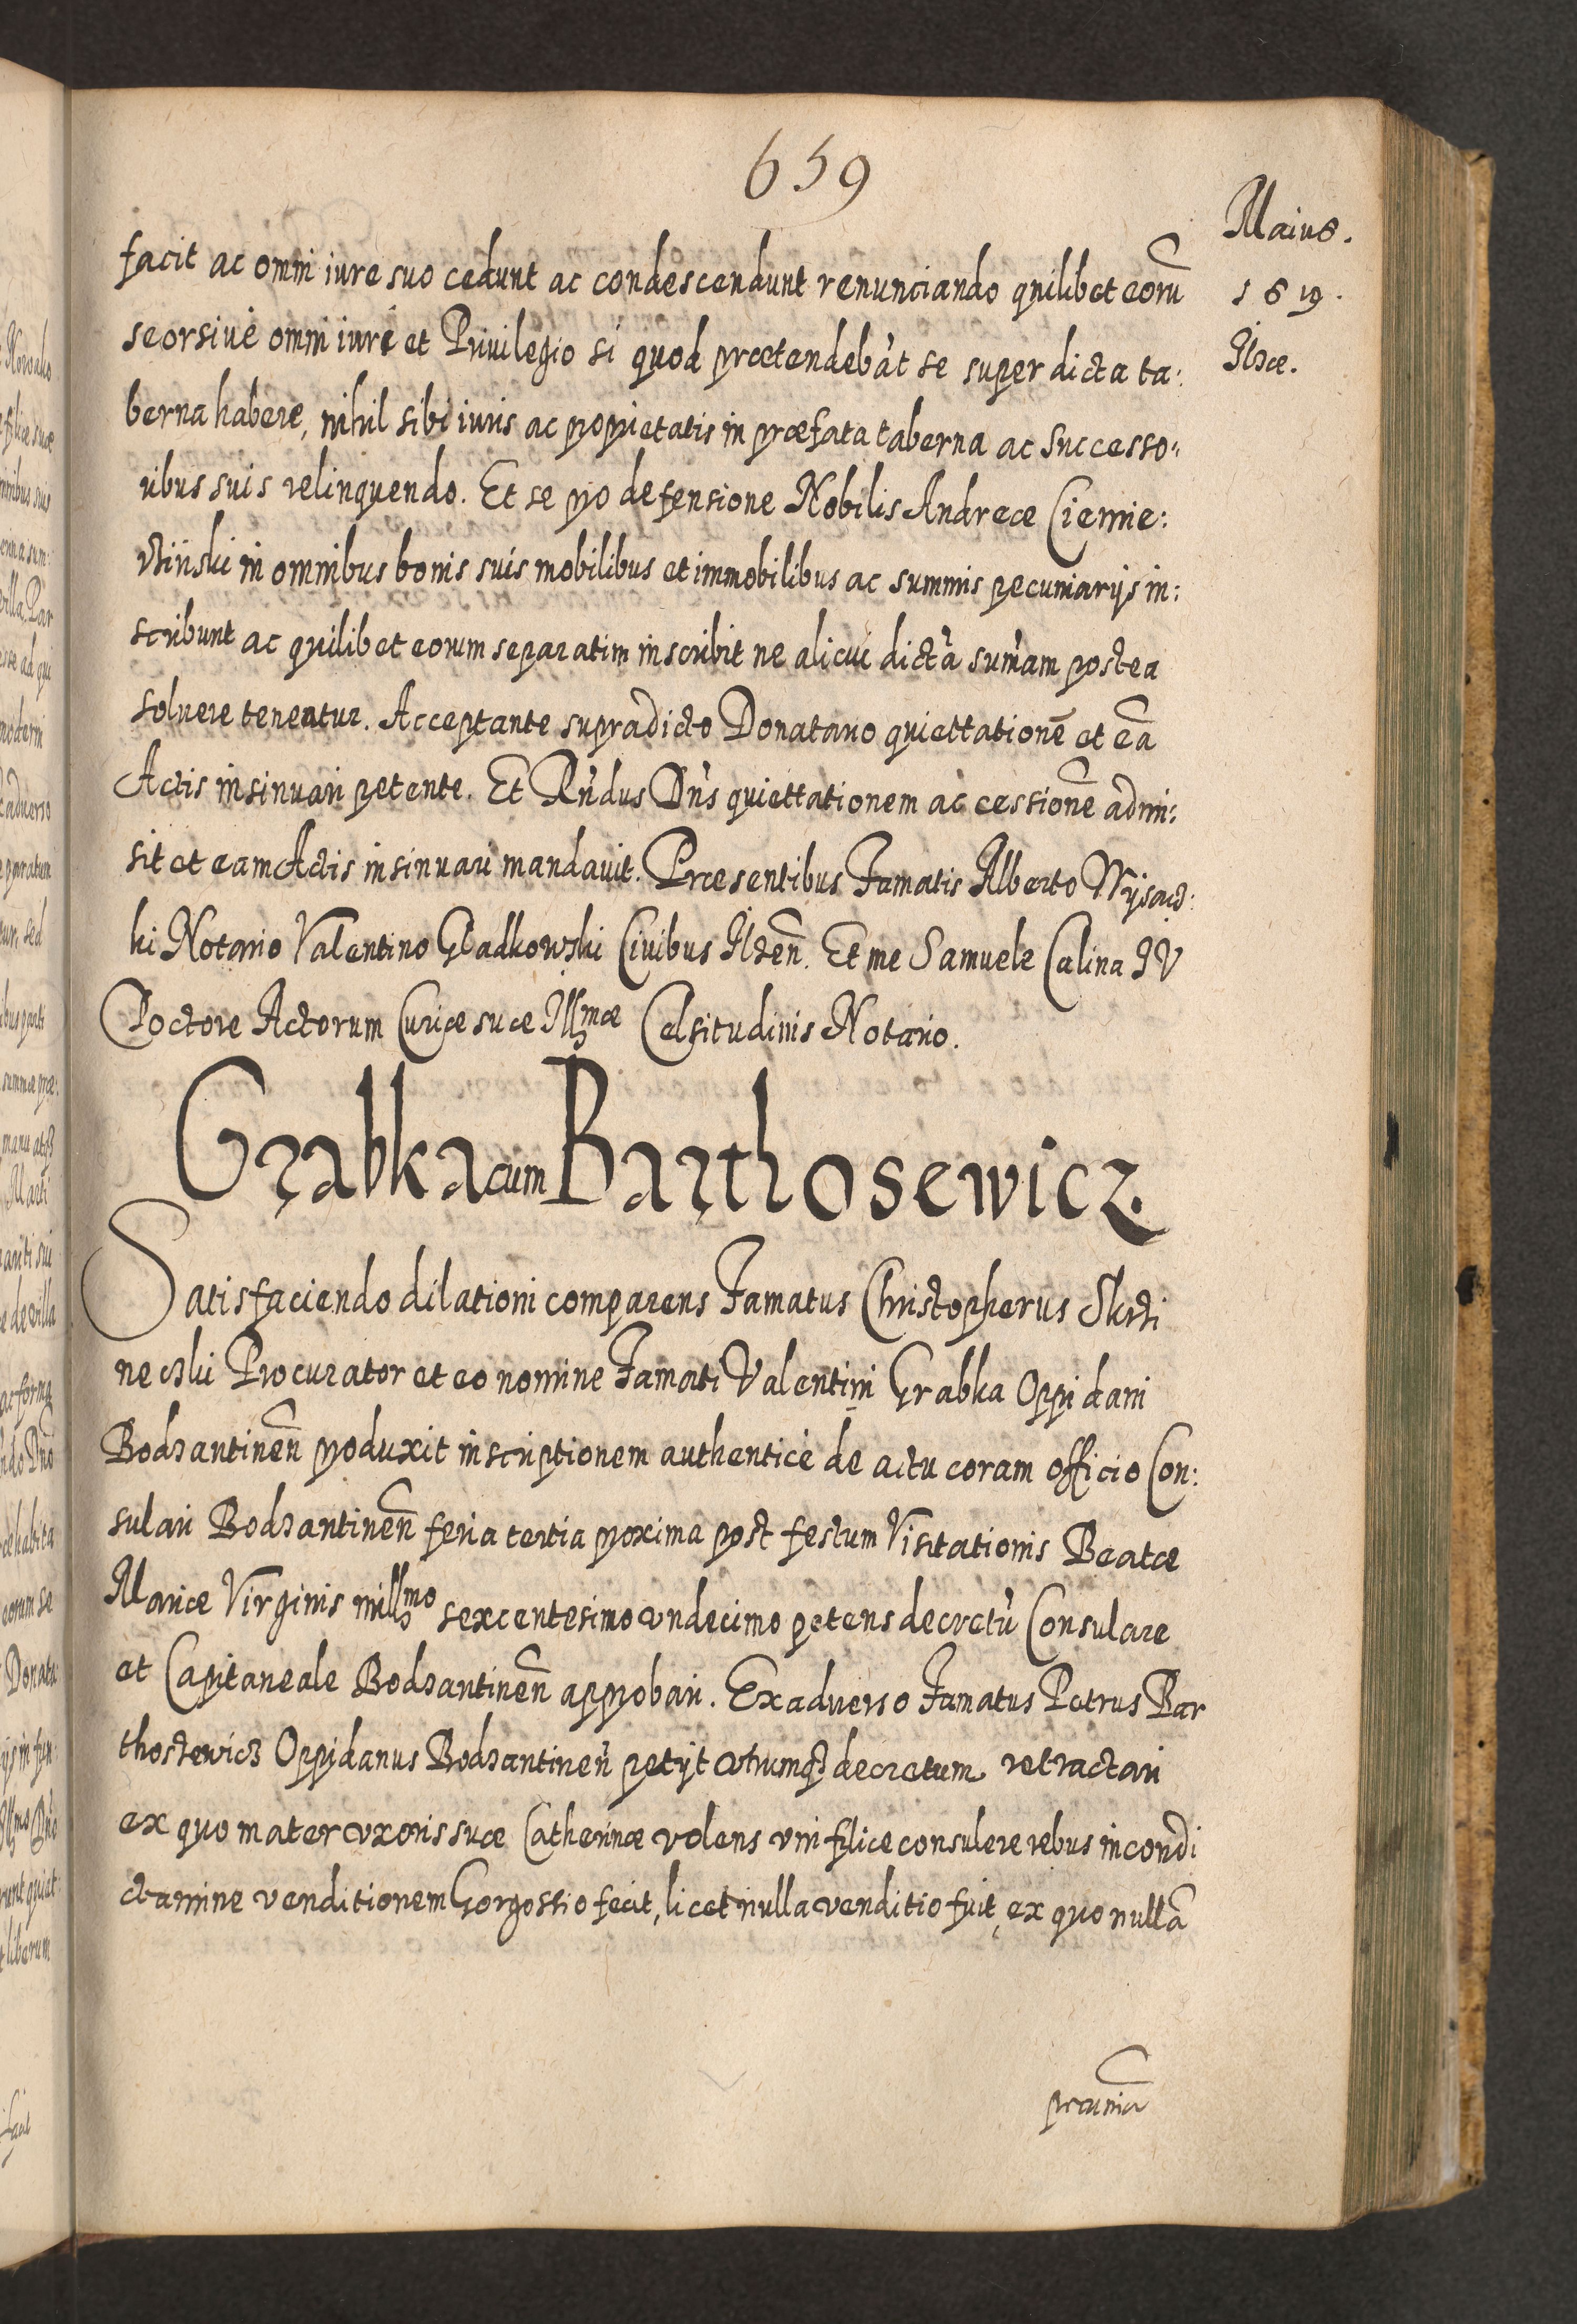 659
Maius.
1619.
Ilżæ.
facit ac omni iure suo cedunt ac condescendunt renunciando quilibet eorū
seorsiue omni iuri et Priuilegio si quod prætendebāt se super dicta ta:
berna habere, nihil sibi iuris ac proprietatis in præfata taberna ac successo:
ribus suis relinquendo. Et se pro defensione Nobilis Andreæ Ciernie:
in omnibus bonis suis mobilibus et immobilibus ac summis pecuniarijs in:
scribunt ac quilibet eorum separatim inscribit ne alicui dictā sum̄am postea
soluere teneatur. Acceptante supradicto Donatario quiettationē et eā
Actis insinuari petente. Et Rn̄dus Dn̄s quiettationem ac cessionē admi:
sit et eam Actis insinuari mandauit. Præsentibus Famatis Alberto
ki Notario Valentino Gładkowski Ciuibus Ilzen̄. Et me Samuele Calina IV
Doctore Actorum Curiæ suæ Illmæ Celsitudinis Notario.
Grabka cum Barthosewicz.
Satisfaciendo dilationi comparens Famatus Christopherus
Procurator et eo nomine Famati Valentini Grabka Oppidani
Bodzantinen̄ produxit inscriptionem authenticè de actu coram officio Con:
sulari Bodzantinen̄ feria tertia proxima post festum Visitationis Beatæ
Mariæ Virginis millmo sexcentesimo vndecimo petens decretū Consulare
et Capitaneale Bodzantinen̄ approbari. Ex aduerso Famatus Petrus Bar
thoszewicz Oppidanus Bodzantinen̄ petijt vtrumq3 decretum retractari
ex quo mater vxoris suæ Catherinæ volens vni filiæ consulere rebus in condi
ctamine venditionem Gorgossio fecit, licet nulla venditio fuit, ex quo nullā
pecuniā